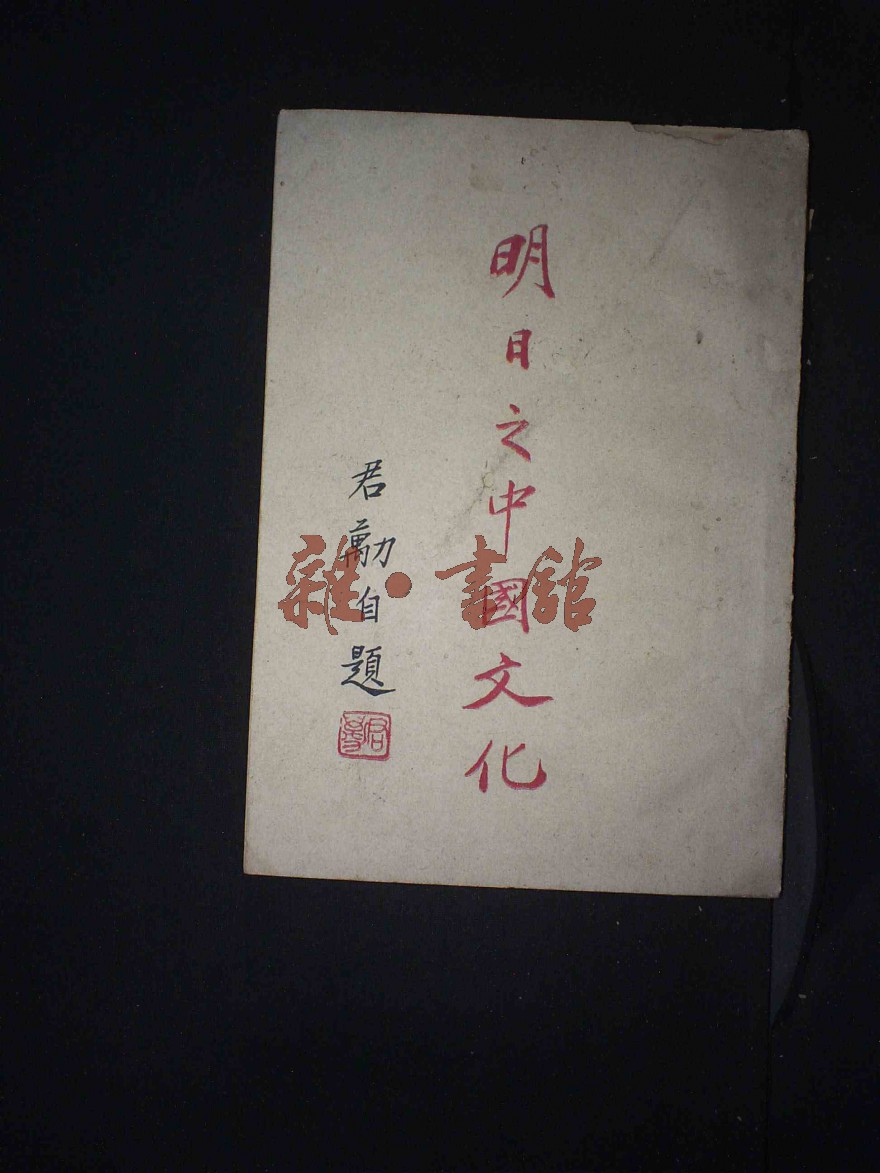 明日之中國文化
君勱自題
雜·書館